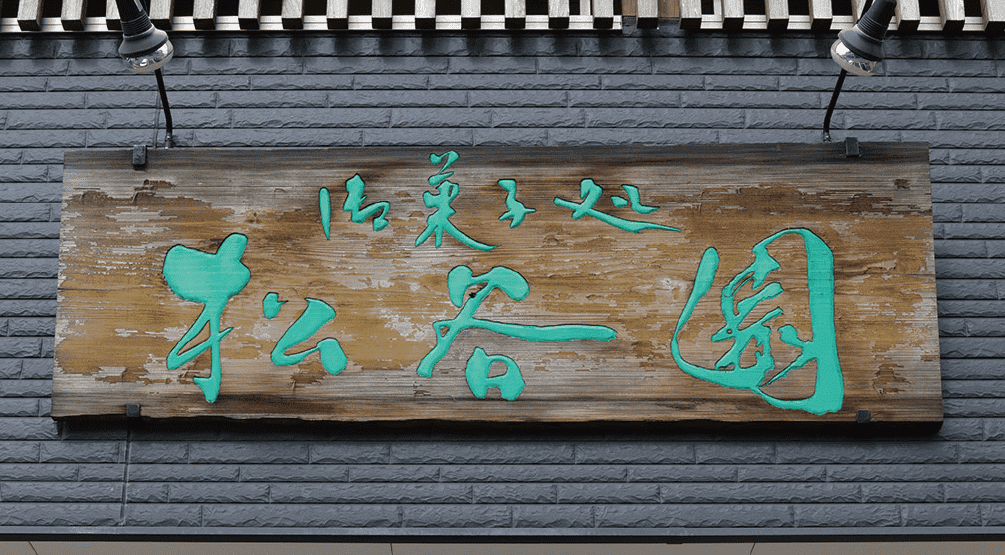 御菓子処
松谷園